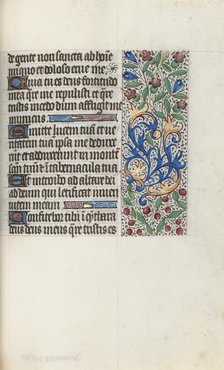 de gente non sancta ab homine
iniquo et doloso erue me
Quia tu es deus fortitudo
mea que me repulisti et quare
tristis incedo dum affligit me
inimicus
Emitte lucem tuam et ueri
tatem tuam ipsa me deduxe
runt et adduxerunt in montem
sanctum tuum et in tabernacula tua
Et introibo ad altare dei
ad deum qui letificat iuuen
tutem meam
Confitebor tibi in cythara
deus deus meus quare tristis es